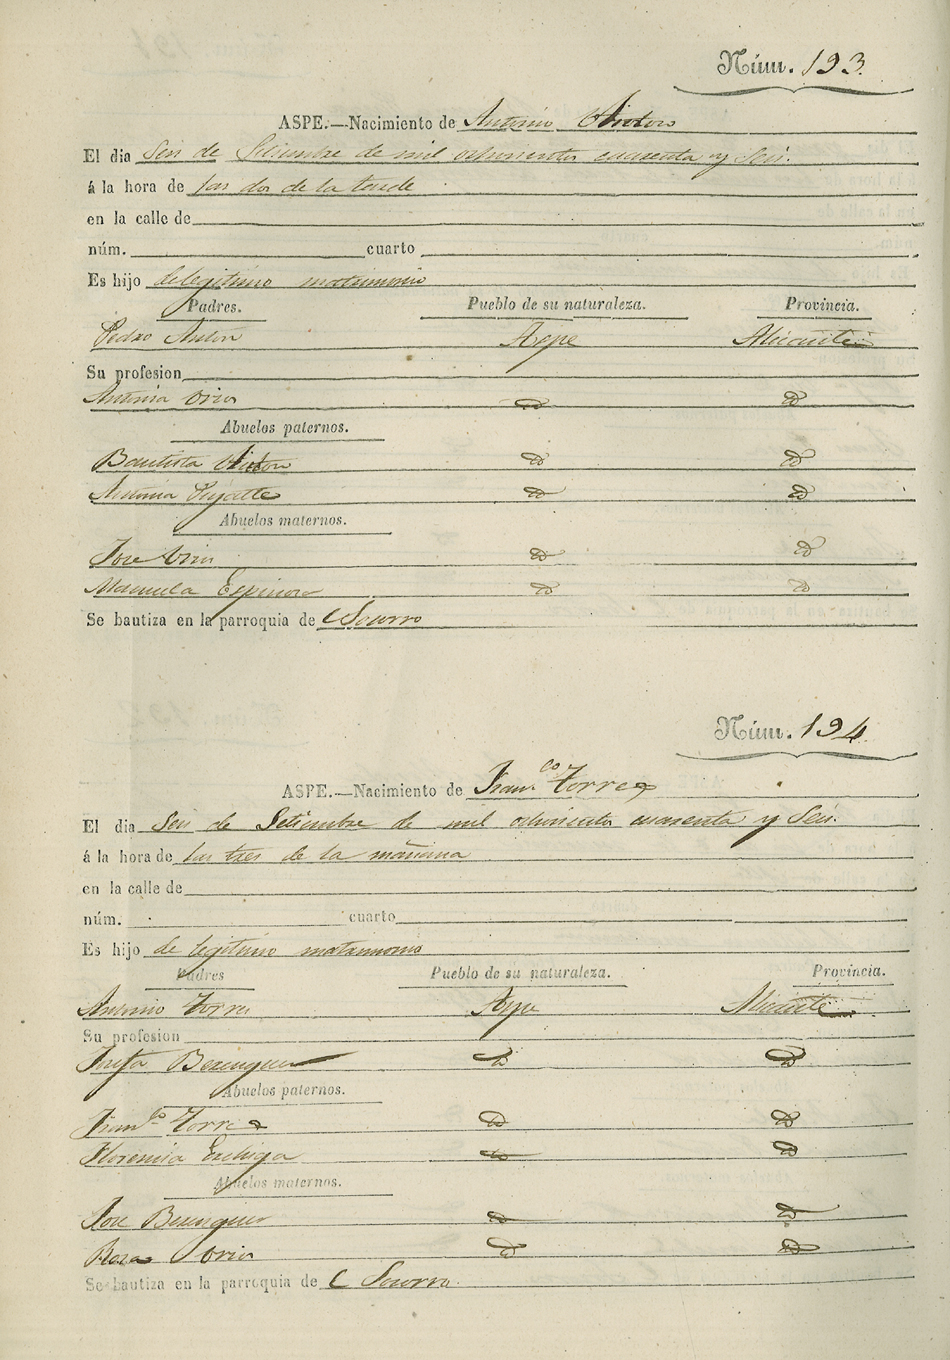 Núm. 193
ASPE.—Nacimiento de Antonio Anton
El dia Seis de Setiembre de mil ochocientos cuarenta y Seis.
á la hora de las dos de la tarde
en la calle de
núm. cuarto
Es hijo de legitimo matrimonio
Padres. Pueblo de su naturaleza. Provincia.
Pedro Anton Aspe Alicante
Su profesion
Antonia
Abuelos paternos.
Bautista Anton
Antonia Pujalte
Abuelos maternos.
Jose
Manuela Espinosa
Se bautiza en la parroquia de Socorro
Núm. 194
ASPE.—Nacimiento de Franco Torres
El dia Seis de Setiembre de mil ochocientos cuarenta y Seis.
á la hora de las tres de la mañana
en la calle de
núm. cuarto
Es hijo de legitimo matrimonio
Padres Pueblo de su naturaleza. Provincia.
Antonio Torres Aspe Alicante
Su profesion
Josefa Berenguer
Abuelos paternos.
Franco Torres
Florencia
Abuelos maternos.
Jose Berenguer
Rosa
Se bautiza en la parroquia de Socorro